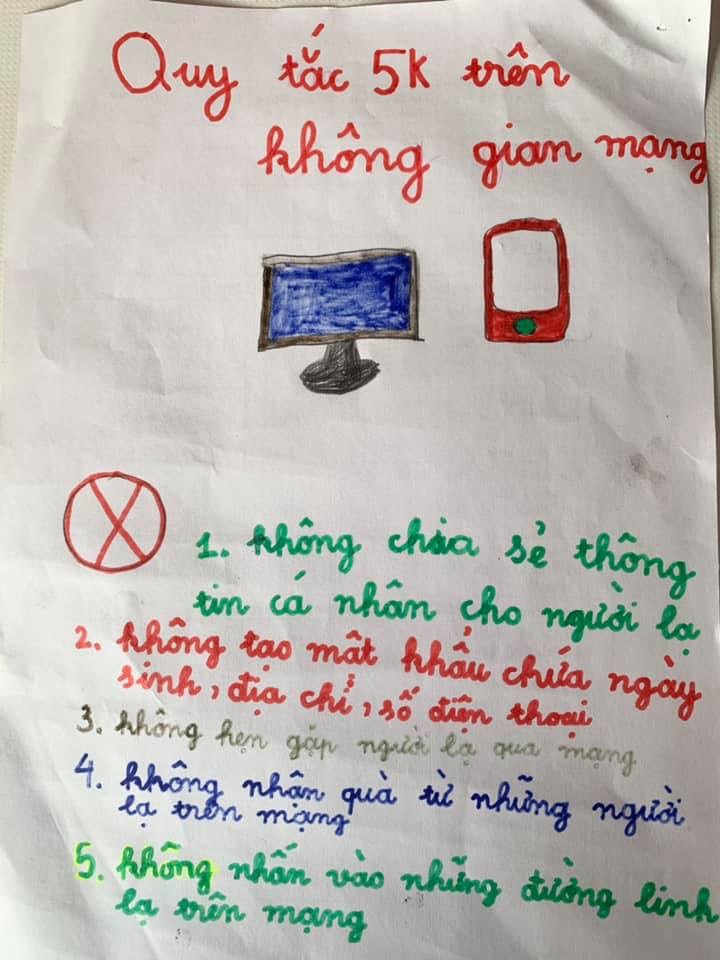 Quy tắc 5K trên
không gian mạng
1. không chia sẻ thông
tin cá nhân cho người lạ
2. không tạo mật khẩu chứa ngày
sinh, địa chỉ, số điện thoại
3. không hẹn gặp người lạ qua mạng
4. không nhân quà từ những người
lạ trên mạng
5. không nhấn vào những đường linh
lạ trên mạng